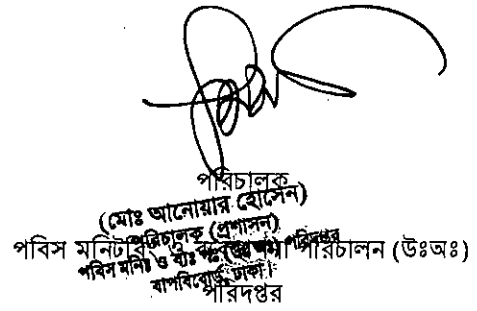 পরিচালক
(মোঃ আনোয়ার হোসেন)
পরিচালক (প্রশাসন)
পবিস মনিটরিং ও ব্যবস্থাপনা পরিচালন (উঃঅঃ)
পবিস মনিঃ ও ব্যঃ পঃ (উঃ অঃ) পরিদপ্তর
বাপবিবোর্ড, ঢাকা।
পরিদপ্তর